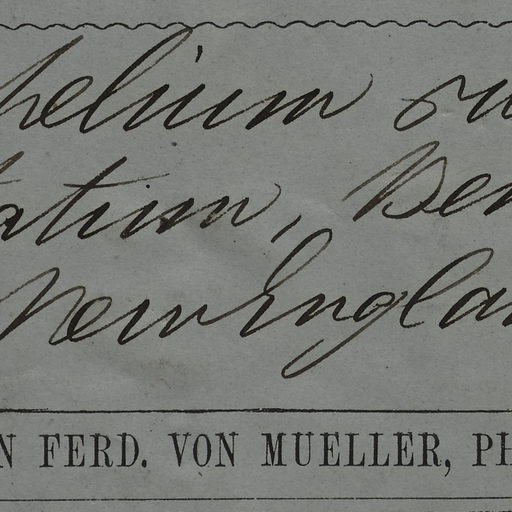 helium su
tatium, Ben
New Englan
N FERD. VON MUELLER, PH